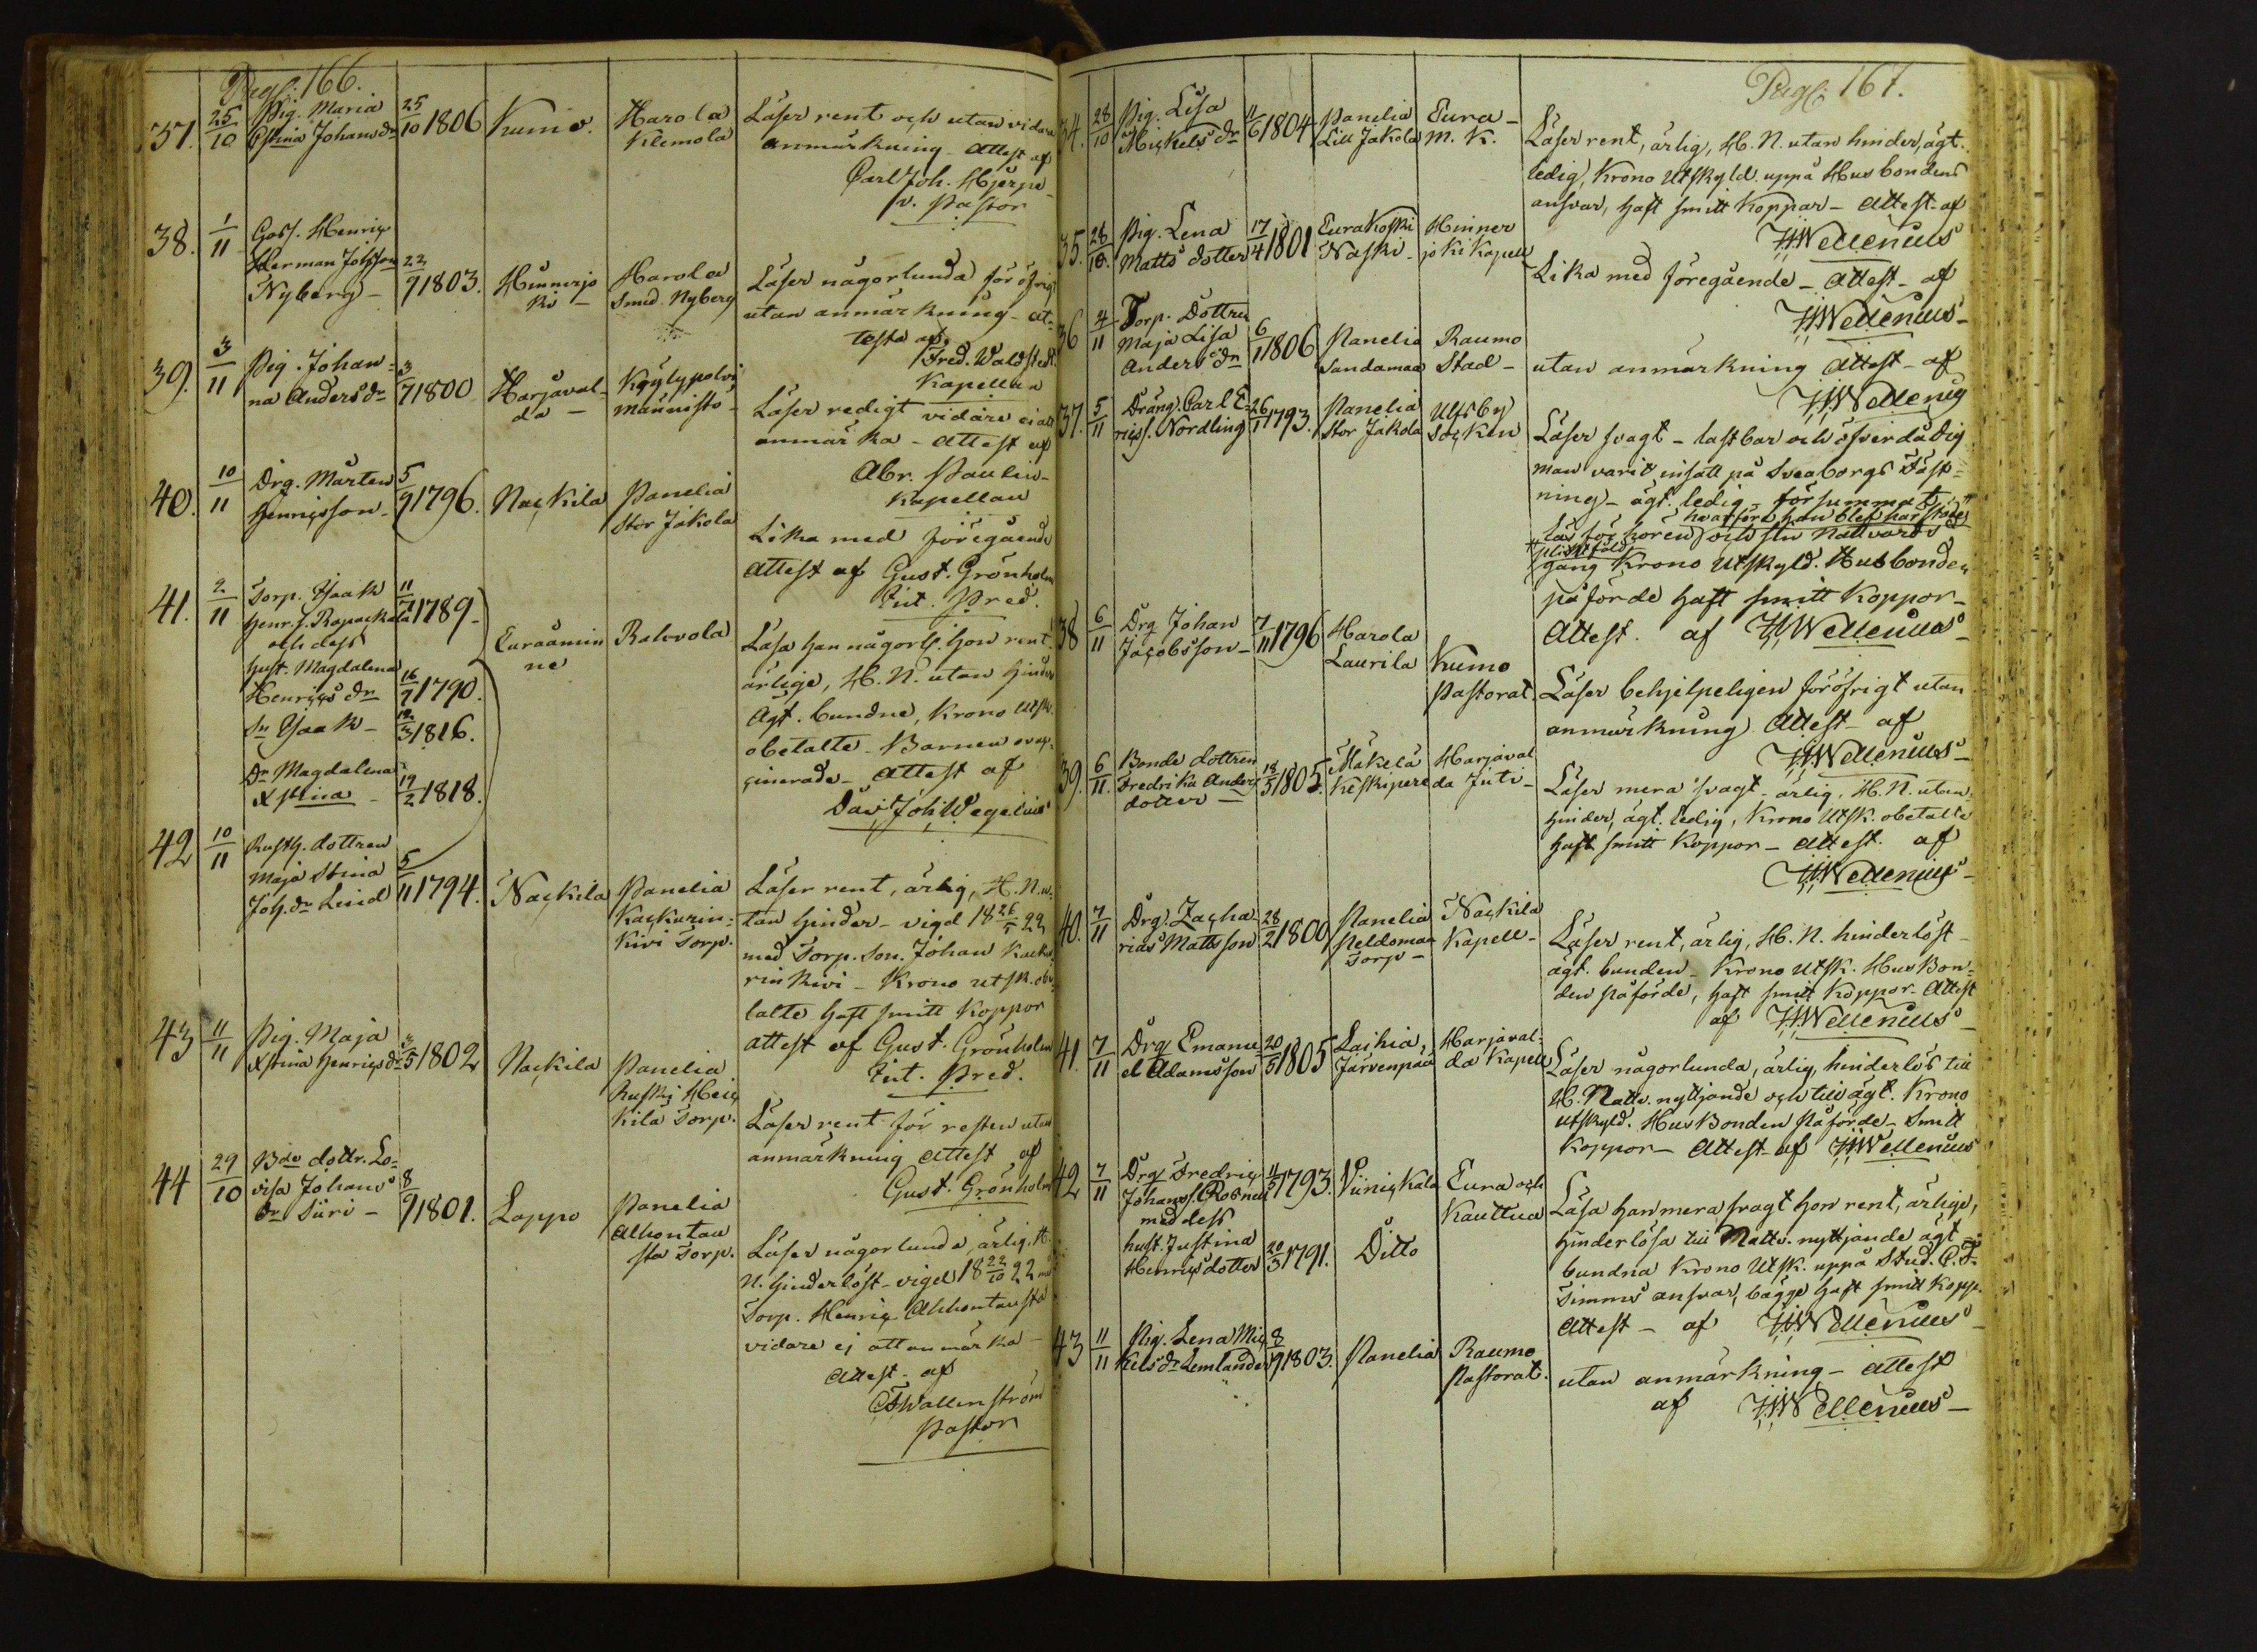 Pag. 166.
37. 25/10 Pig. Maria Stina Johansdr 25/10 1806 Kumo. Harola Klemola Läser rent och utan vidare
anmärkning attest af
Carl Joh. Hjerpe
v. Pastor
38. 1/11 Goss. Henric
Herman Johsson
Nyberg - 23/9 1803. Hinnerjo
ki - Harola
Smed. Nyberg Läser någorlunda föröfrigt
utan anmärkning - at-
testa af
Fred. Waldstedt
Kapellan
39. 3/11 Pig. Johan-
na Andersdr 3/7 1800 Harjaval-
da - Kyly
männistö Läser redigt vidare ej att
anmärka - attest af
Abr. Paulin
Kapellan
40. 10/11 Drg. Mårten
Henricsson - 5/9 1796. Nackila Panelia
Stor Jakola Lika med föregående
attest af Gust. Grönholm
Pred.
41. 2/11 Torp. Isaak
Henr. s.
och dess 11/7 1789 -
hust. Magdalena
Henricsdr 16/7 1790.
Sn Isaak - 12/3 1816.
Dr Magdalena
Xstina - 19/2 1818.
Euraåmin
ne Rahvola Läsa han någorl. hon rent
ärlige, H. N. utan hinder
Ägt. bundne, Krono utsk.
obetalte - Barnen ovac-
cinerade - attest af
Dav. Joh. Wegelius
42 10/11 Rusth. dottren
Maja Stina
Joh.dr Lind 5/11 1794. Nackila Panelia
Kackurin-
kivi Torp. Läser rent, ärlig, H. N. u-
tan hinder - vigd 18 26/5 22
med Torp. Son. Johan Kacku
rinkivi - Krono utsk. obe-
talte haft smitt koppor
attest af Gust. Grönholm
Pred.
43 11/11 Pig. Maja
Xstina Henricsdr 3/5 1802 Nackila Panelia
Ruski Heic
kilä Torp. Läser rent för resten utan
anmärkning attest af
Gust. Grönholm
44 29/10 Bde dottr. Lo-
visa Johans
dr Siiri - 8/9 1801. Lappo Panelia
Alhontau
sta Torp. Läser någorlunda, ärlig, H.
N. hinderlöst - vigd 18 22/10 22 med
Torp. Henric Alhontausta
vidare ej att anmärka -
attest - af
Wallenström
Pastor
Pag. 167.
34. 28/10 Pig. Lisa
Mickelsdr 11/6 1804 Panelia
Lill Jakola Eura -
M. K. Läser rent, ärlig, H. N. utan hinder, ägt.
ledig, Krono Utskyld. uppå Husbondens
ansvar, haft smitt koppar - attest - af
Wellenius
35. 28/10. Pig. Lena
Matts dotter 17/4 1801 Eura Koski
Naski - Hinner
joki Kapell Lika med föregående - attest - af
Wellenius -
36 4/11 Torp. Dottren
Maja Lisa
Andersdr 6/1 1806 Panelia
Sandamaa Raumo
Stad - utan anmärkning attest - af
Wellenius
37. 5/11 Dräng. Carl E-
rics s. Nordling 26/1 1793. Panelia
Stor Jakola Ulfsby
Socken Läser svagt - lastbar och öfverdådig
man varit insatt på Sveaborgs Fäst-
ning - ägt. ledig - försummat
läsförhören och sin Nattvards
hvarföre han blef har stode
plikt fäld
gång Krono Utskyld. Husbonden
påförde haft smitt Koppor -
Attest. af Wellenius -
38 6/11 Drg Johan
Jacobsson - 7/11 1796 Harola
Laurila Kumo
Pastorat. Läser behjelpeligen föröfrigt utan
anmärkning attest - af
Wellenius -
39. 6/11. Bonde dottren
Fredrika Anders
dotter - 18/5 1805. Mäkelä
Keskipere Harjaval
da Juti - Läser mera svagt - ärlig, H. N. utan
hinder, ägt. ledig, Krono Utsk. obetalte
haft smitt Koppor - attest. af
Wellenius -
40. 7/11 Drg. Zacha-
rias Mattsson 28/2 1800 Panelia
Peldomaa
Torp - Nackila
Kapell - Läser rent, ärlig, H. N. hinderlöst -
ägt. bunden - Krono Utsk. HusBon-
den påförde, haft smitt koppor - Attest
af Wellenius -
41. 7/11 Drg Emanu-
el Adamsson 20/5 1805 Laihia,
Järvenpää Harjaval-
da Kapell Läser någorlunda, ärlig, hinderlös till
H. Nattv. nyttjande och till ägt. Krono
utskyld. HusBonden Påförde - Smitt
Koppor - Attest - af Wellenius
42 7/11 Drg Fredric
Johans s. Rosnell 11/5 1793.
med dess
hust. Justina
Henricsdotter 20/3 1791. Viinickala
Ditto Eura och
Kauttua Läsa han mera svagt hon rent, ärlige,
hinderlösa till Nattv. nyttjande ägt -
bundna Krono Utsk. uppå Stud. C. F.
Timms ansvar, bägge haft smitt kopp.
Attest - af Wellenius -
43 11/11 Pig. Lena Mic
kelsdr Lemlander 8/9 1803. Panelia Raumo
Pastorat. utan anmärkning - attest
af Wellenius -